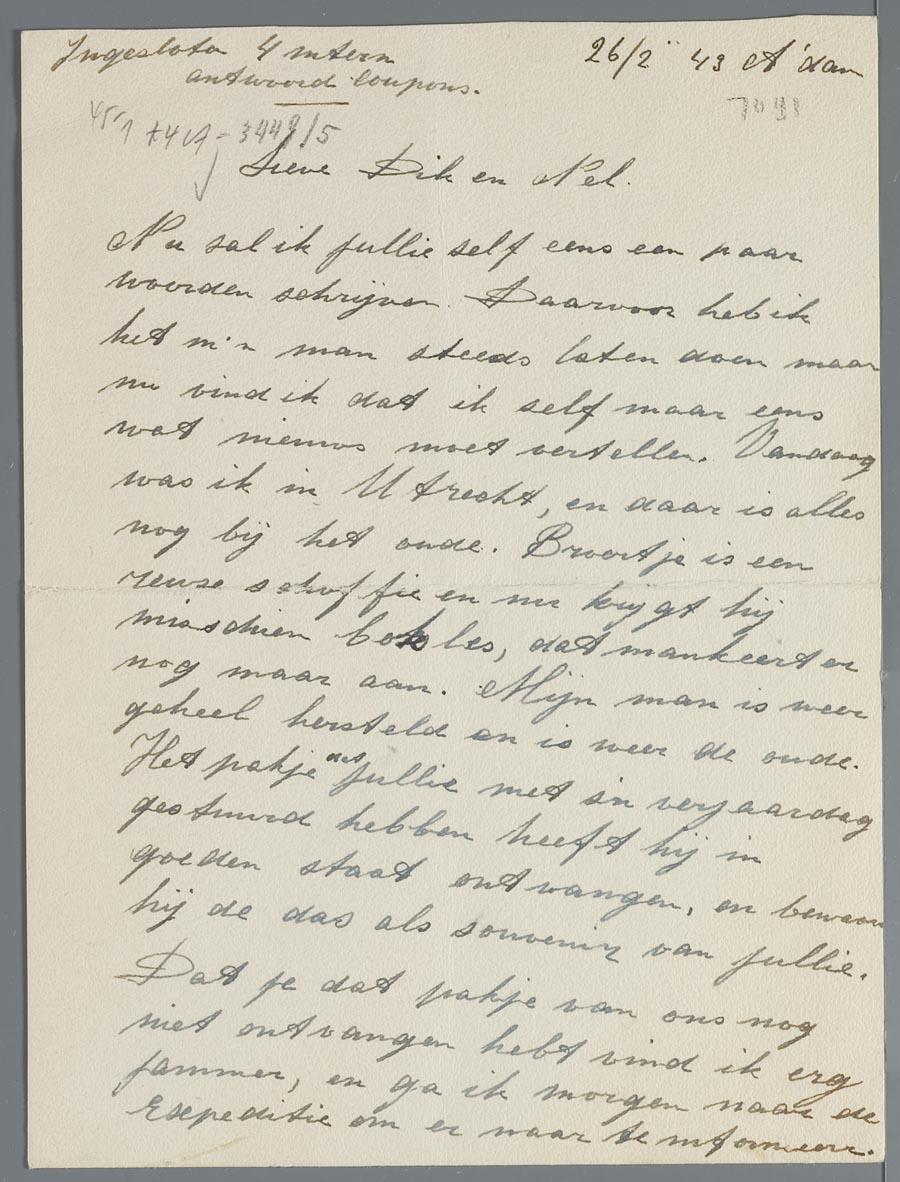 Ingesloten 4 intern
antwoord coupons.
26/2 43 A'dam
Lieve Dik en Nel.
Nu sal ik jullie self eens een paar
woorden schrijven. Daarvoor heb ik
het m'n man steeds laten doen maar
nu vind ik dat ik self maar eens
wat nieuws moet vertellen. Vandaag
was ik in Utrecht, en daar is alles
nog bij het oude. Broertje is een
reuse schoffie en nu krijgt hij
misschien boksles, dat mankeert er
nog maar aan. Mijn man is weer
geheel hersteld en is weer de oude.
Het pakje dat jullie met sn verjaardag
gestuurd hebben heeft hij in
goeden staat ontvangen, en bewaart
hij de das als souvenir van jullie.
Dat je dat pakje van ons nog
niet ontvangen hebt vind ik erg
jammer, en ga ik morgen naar de
Expeditie om er naar te informeere.